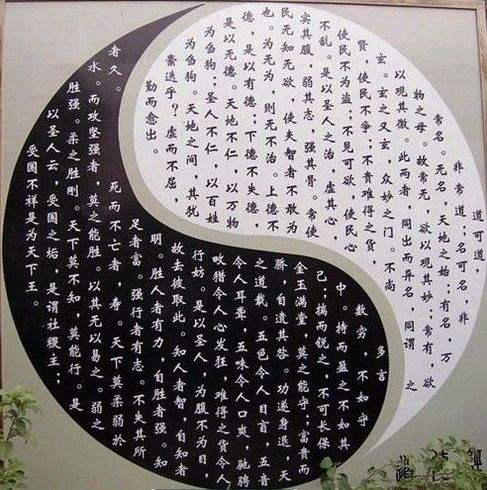 道可道，
非常道；名可名，非
常名。无名，天地之始；有名，万
物之母。故常无，欲以观其妙；常有，欲
以观其徼。此两者，同出而异名，同谓 之
玄。玄之又玄，众妙之门。不尚
贤，使民不争；不贵难得之货，
使民不为盗；不见可欲，使民心
不乱。是以圣人之治，虚其心，
实其腹，弱其志，强其骨。常使
民无知无欲，使夫智者不敢为
也。为无为，则无不治。上德不
德，是以有德；下德不失德，
是以无德。天地不仁，以万物
为刍狗；圣人不仁，以百姓
为刍狗。天地之间，其犹
橐迭乎？虚而不屈，
勤而愈出。
多言
数穷，不如守
中。持而盈之不如其
己；揣而锐之，不可长保
金玉满堂，莫之能守；富贵而
骄，自遗其咎。功遂身退，天
之道哉。五色令人目盲，五音
令人耳聋，五味令人口爽，驰骋
畋猎令人心发狂，难得之货令人
行妨。是以圣人，为腹不为目，
故去彼取此。知人者智，自知者
明。胜人者有力，自胜者强。知
足者富。强行者有志。不失其所
者久。 死而不亡者，寿。天下莫柔弱於
水。而攻坚强者，莫之能胜。以其无以易之。弱之
胜强。柔之胜刚。天下莫不知，莫能行。是
以圣人云，受国之垢，是谓社稷主；
受国不祥是为天下王。